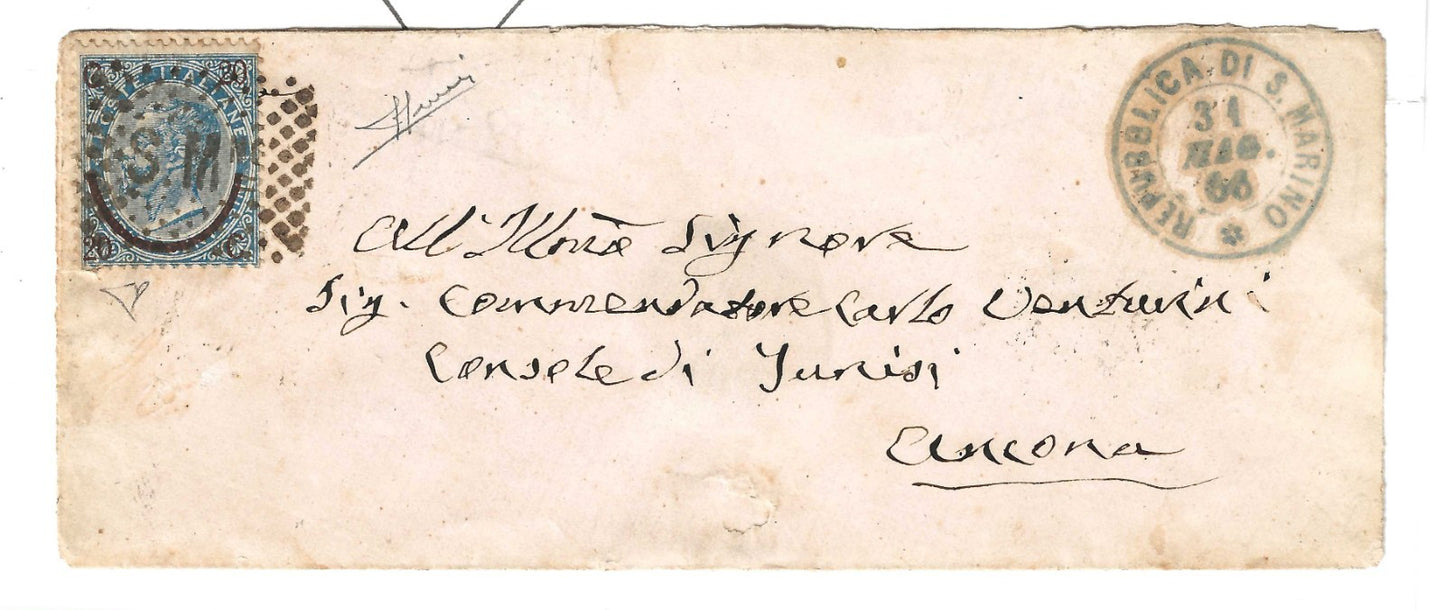 20 C 20 C
POSTE ITALIANE
S M
REPUBBLICA DI S. MARINO
31
MAG.
66
All' Illmo Signore
Sig. Commendatore Carlo Venturini
Console di Tunisi
Ancona